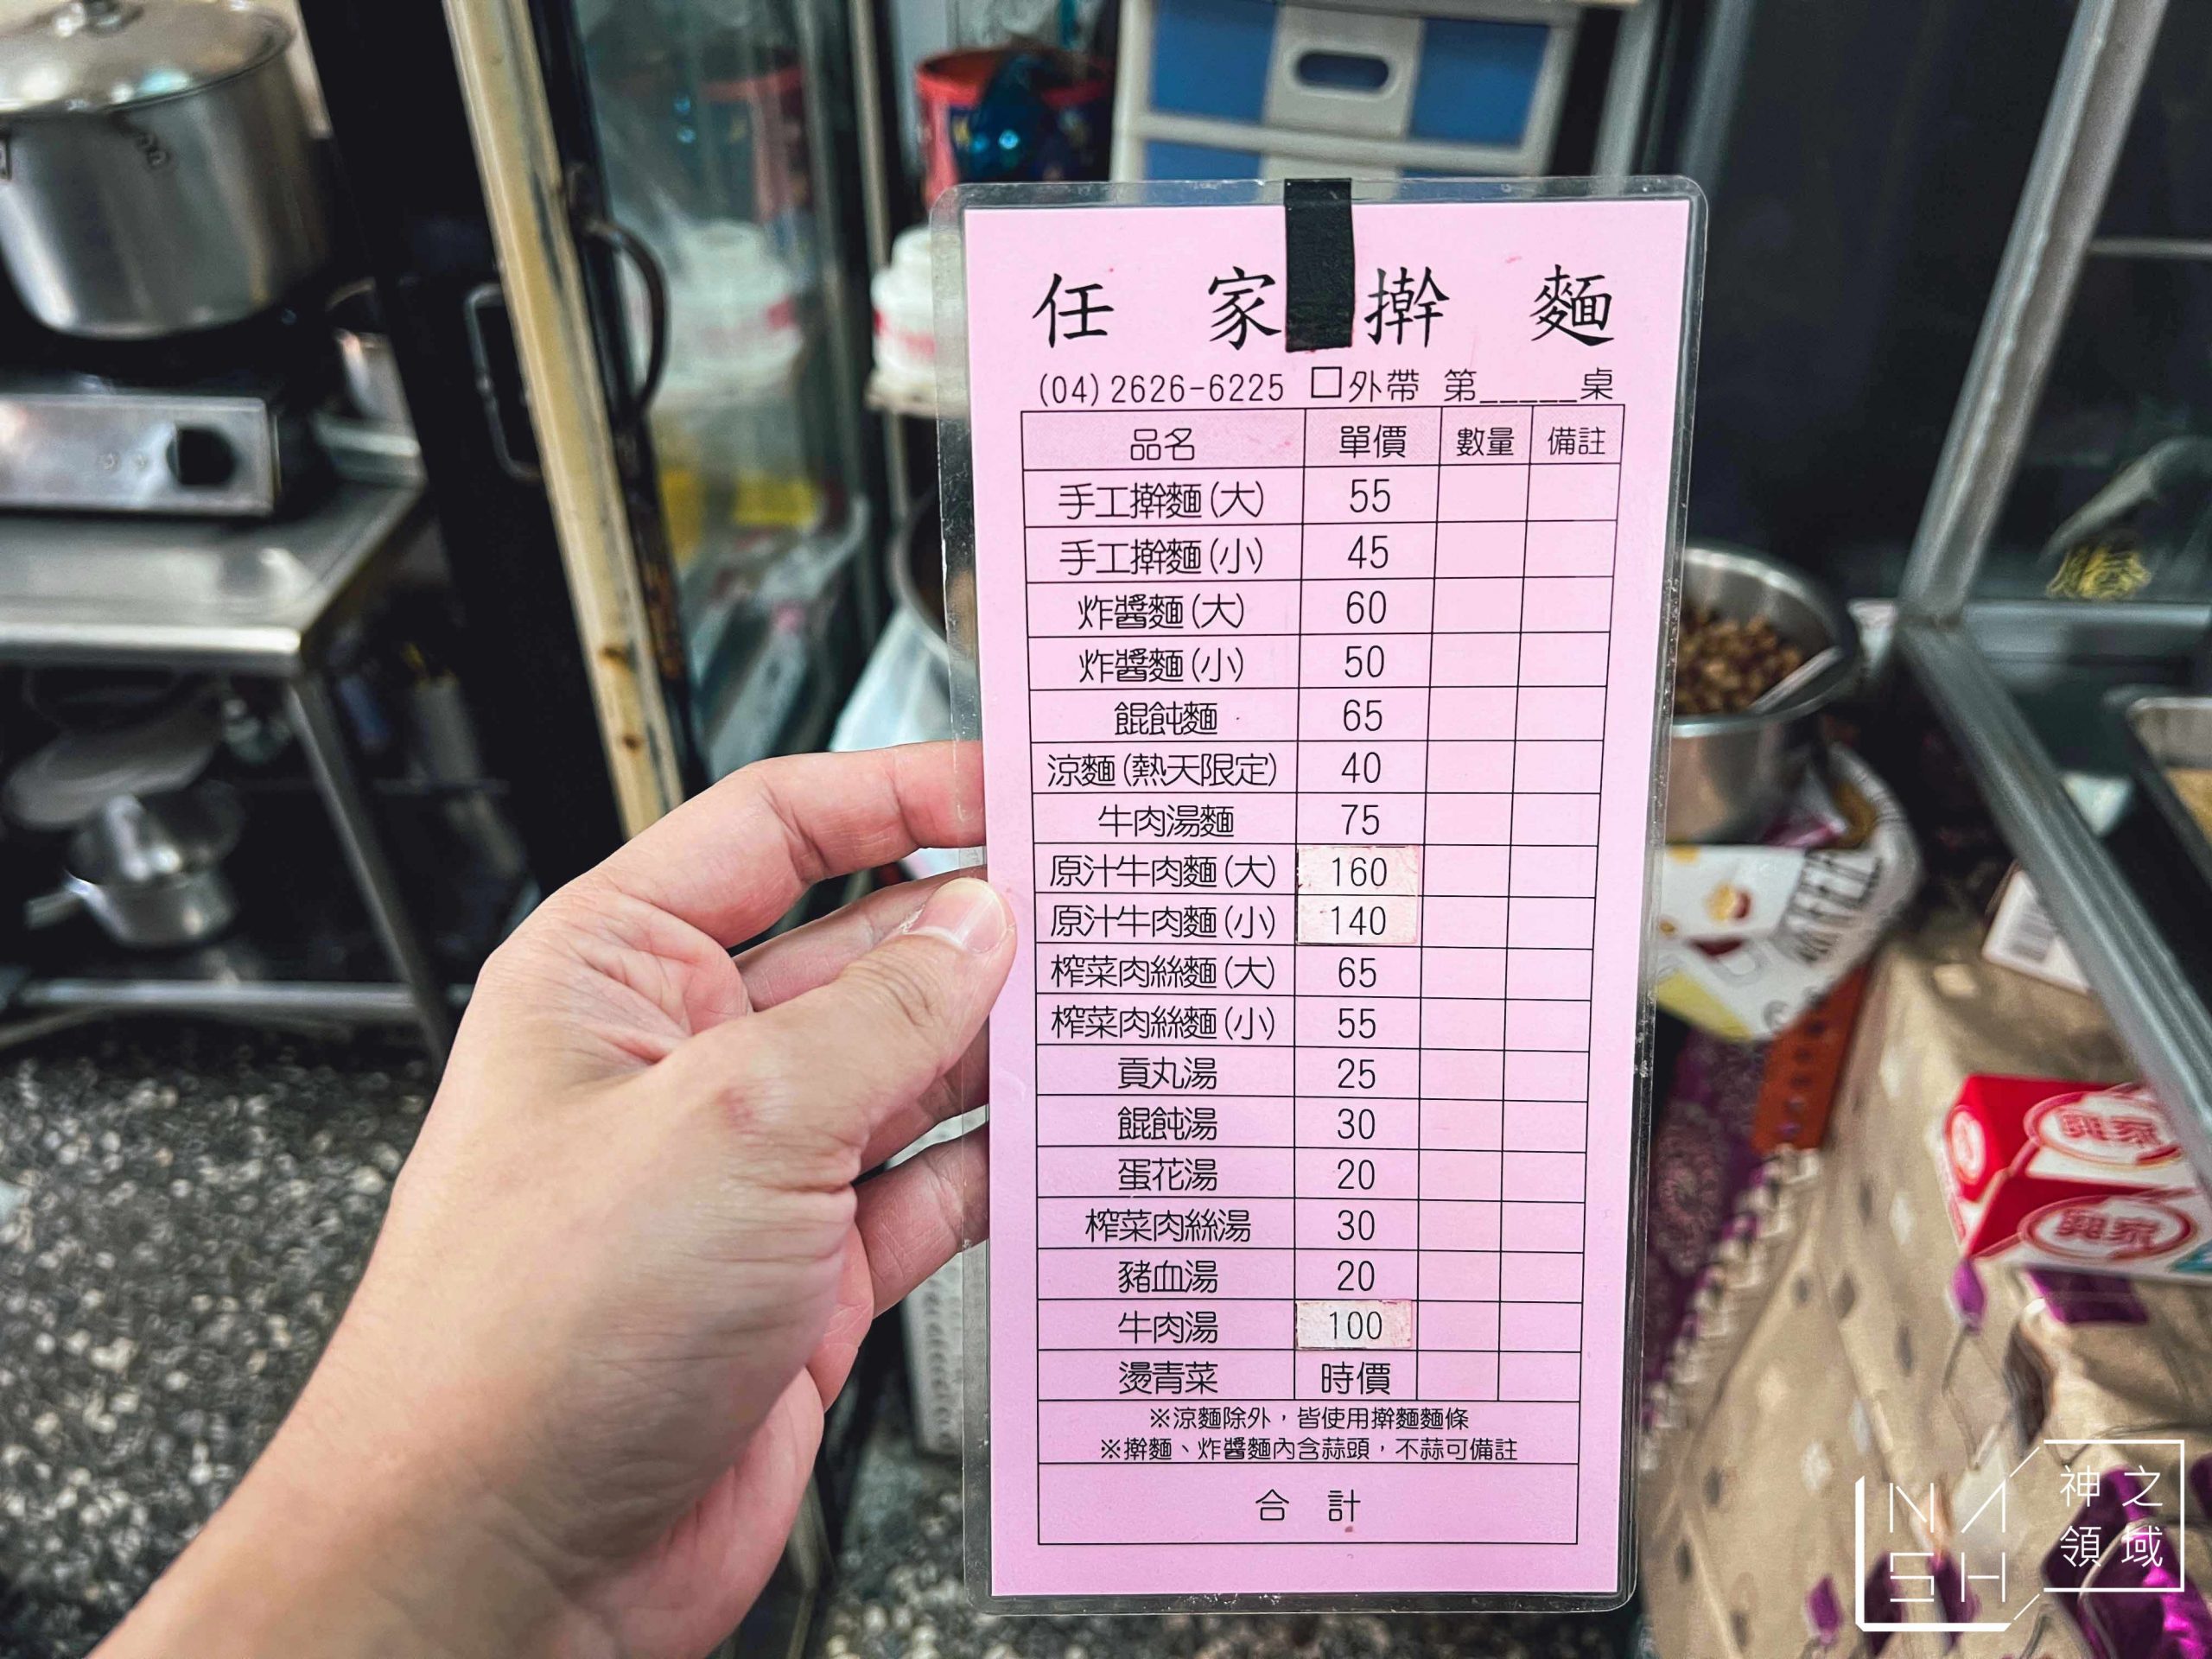 任家擀麵
(04)2626-6225 □外帶 第_____桌
品名 單價 數量 備註
手工擀麵(大) 55
手工擀麵(小) 45
炸醬麵(大) 60
炸醬麵(小) 50
餛飩麵 65
涼麵(熱天限定) 40
牛肉湯麵 75
原汁牛肉麵(大) 160
原汁牛肉麵(小) 140
榨菜肉絲麵(大) 65
榨菜肉絲麵(小) 55
貢丸湯 25
餛飩湯 30
蛋花湯 20
榨菜肉絲湯 30
豬血湯 20
牛肉湯 100
燙青菜 時價
※涼麵除外，皆使用擀麵麵條
※擀麵、炸醬麵內含蒜頭，不蒜可備註
合計
NASH
神之領域